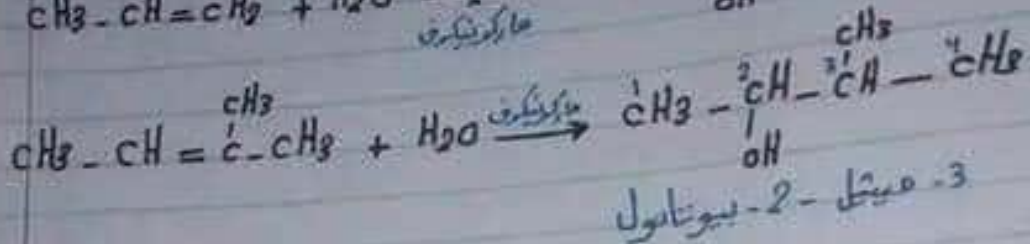 CH3 - CH = CH2 + H2O
ماركونيكوف
OH
CH3 - CH = C - CH3 + H2O ماركونيكوف → 1CH3 - 2CH - 3CH — 4CH3
CH3
CH3
OH
3 - ميثيل - 2 - بيوتانول